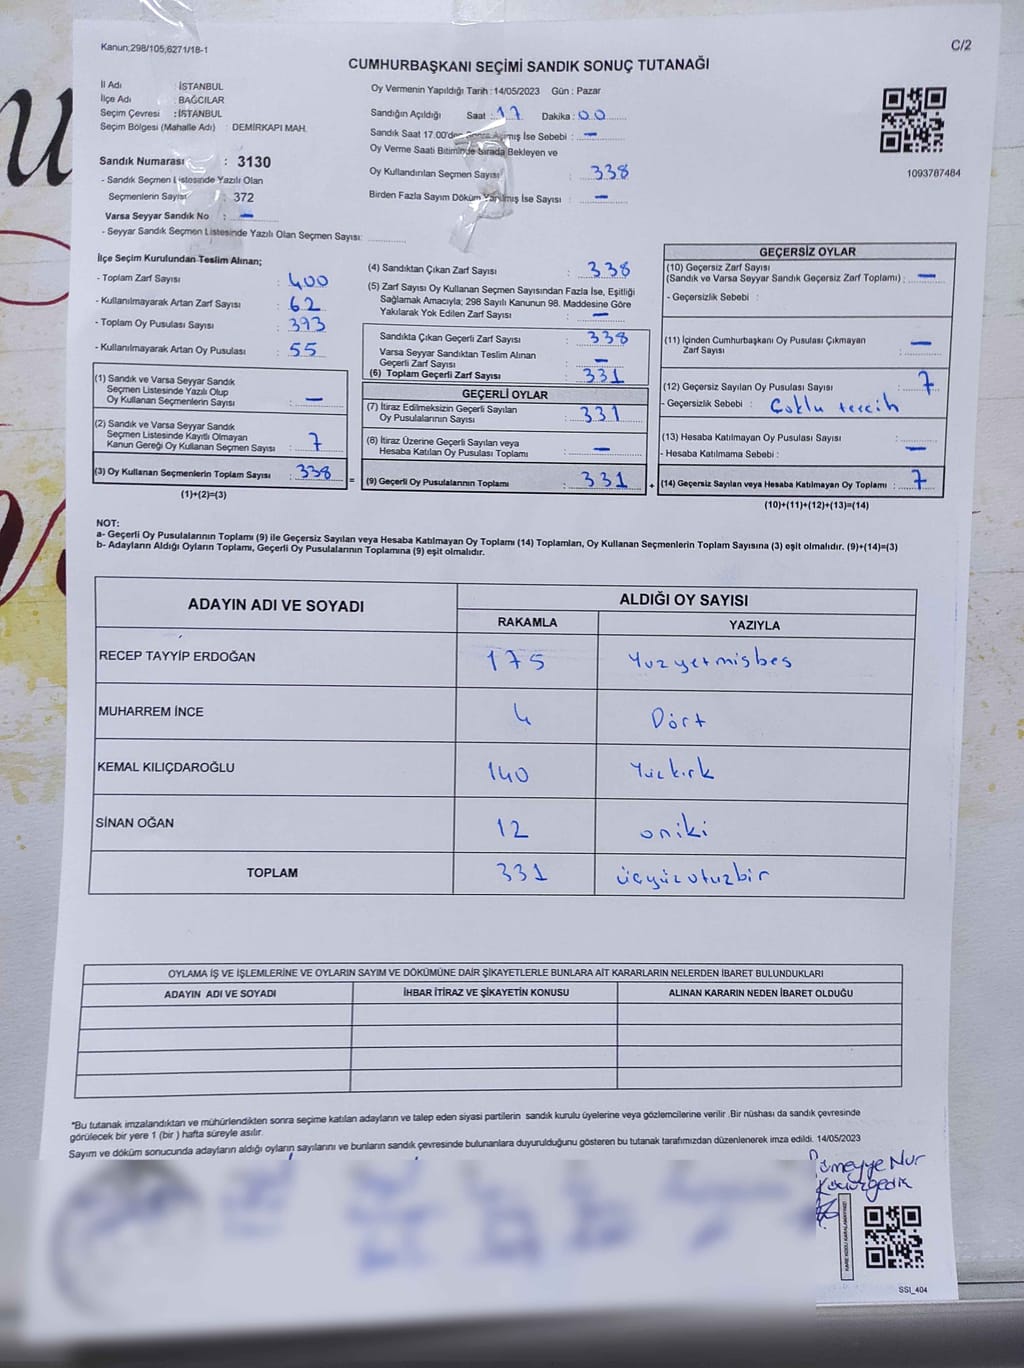 Kanun;298/105,6271/18-1
C/2
CUMHURBAŞKANI SEÇİMİ SANDIK SONUÇ TUTANAĞI
İl Adı : İSTANBUL
İlçe Adı : BAĞCILAR
Seçim Çevresi : İSTANBUL
Seçim Bölgesi (Mahalle Adı) : DEMİRKAPI MAH.
Sandık Numarası : 3130
- Sandık Seçmen Listesinde Yazılı Olan
Seçmenlerin Sayısı : 372
Varsa Seyyar Sandık No : –
- Seyyar Sandık Seçmen Listesinde Yazılı Olan Seçmen Sayısı:
Oy Vermenin Yapıldığı Tarih : 14/05/2023 Gün : Pazar
Sandığın Açıldığı Saat : 17 Dakika : 00
Sandık Saat 17.00'den Sonra Açılmış İse Sebebi : –
Oy Verme Saati Bitiminde Sırada Bekleyen ve
Oy Kullandırılan Seçmen Sayısı : 338
Birden Fazla Sayım Döküm Yapılmış İse Sayısı : –
1093787484
İlçe Seçim Kurulundan Teslim Alınan;
- Toplam Zarf Sayısı : 400
- Kullanılmayarak Artan Zarf Sayısı : 62
- Toplam Oy Pusulası Sayısı : 393
- Kullanılmayarak Artan Oy Pusulası : 55
(1) Sandık ve Varsa Seyyar Sandık
Seçmen Listesinde Yazılı Olup
Oy Kullanan Seçmenlerin Sayısı : –
(2) Sandık ve Varsa Seyyar Sandık
Seçmen Listesinde Kayıtlı Olmayan
Kanun Gereği Oy Kullanan Seçmen Sayısı : 7
(3) Oy Kullanan Seçmenlerin Toplam Sayısı : 338
(1)+(2)=(3)
(4) Sandıktan Çıkan Zarf Sayısı : 338
(5) Zarf Sayısı Oy Kullanan Seçmen Sayısından Fazla İse, Eşitliği
Sağlamak Amacıyla; 298 Sayılı Kanunun 98. Maddesine Göre
Yakılarak Yok Edilen Zarf Sayısı : –
Sandıkta Çıkan Geçerli Zarf Sayısı : 338
Varsa Seyyar Sandıktan Teslim Alınan
Geçerli Zarf Sayısı : –
(6) Toplam Geçerli Zarf Sayısı : 331
GEÇERLİ OYLAR
(7) İtiraz Edilmeksizin Geçerli Sayılan
Oy Pusulalarının Sayısı : 331
(8) İtiraz Üzerine Geçerli Sayılan veya
Hesaba Katılan Oy Pusulası Toplamı : –
= (9) Geçerli Oy Pusulalarının Toplamı : 331 +
GEÇERSİZ OYLAR
(10) Geçersiz Zarf Sayısı
(Sandık ve Varsa Seyyar Sandık Geçersiz Zarf Toplamı) : –
- Geçersizlik Sebebi :
(11) İçinden Cumhurbaşkanı Oy Pusulası Çıkmayan
Zarf Sayısı : –
(12) Geçersiz Sayılan Oy Pusulası Sayısı : 7
- Geçersizlik Sebebi : Çoklu tercih
(13) Hesaba Katılmayan Oy Pusulası Sayısı :
- Hesaba Katılmama Sebebi : –
(14) Geçersiz Sayılan veya Hesaba Katılmayan Oy Toplamı : 7
(10)+(11)+(12)+(13)=(14)
NOT:
a- Geçerli Oy Pusulalarının Toplamı (9) ile Geçersiz Sayılan veya Hesaba Katılmayan Oy Toplamı (14) Toplamları, Oy Kullanan Seçmenlerin Toplam Sayısına (3) eşit olmalıdır. (9)+(14)=(3)
b- Adayların Aldığı Oyların Toplamı, Geçerli Oy Pusulalarının Toplamına (9) eşit olmalıdır.
ADAYIN ADI VE SOYADI ALDIĞI OY SAYISI
RAKAMLA YAZIYLA
RECEP TAYYİP ERDOĞAN 175 Yüzyetmişbeş
MUHARREM İNCE 4 Dört
KEMAL KILIÇDAROĞLU 140 Yüzkırk
SİNAN OĞAN 12 oniki
TOPLAM 331 üçyüzotuzbir
OYLAMA İŞ VE İŞLEMLERİNE VE OYLARIN SAYIM VE DÖKÜMÜNE DAİR ŞİKAYETLERLE BUNLARA AİT KARARLARIN NELERDEN İBARET BULUNDUKLARI
ADAYIN ADI VE SOYADI İHBAR İTİRAZ VE ŞİKAYETİN KONUSU ALINAN KARARIN NEDEN İBARET OLDUĞU
*Bu tutanak imzalandıktan ve mühürlendikten sonra seçime katılan adayların ve talep eden siyasi partilerin sandık kurulu üyelerine veya gözlemcilerine verilir .Bir nüshası da sandık çevresinde
görülecek bir yere 1 (bir ) hafta süreyle asılır.
Sayım ve döküm sonucunda adayların aldığı oyların sayılarını ve bunların sandık çevresinde bulunanlara duyurulduğunu gösteren bu tutanak tarafımızdan düzenlenerek imza edildi. 14/05/2023
Nur
KARE KODU KARALAMAYINIZ!
SSI_404